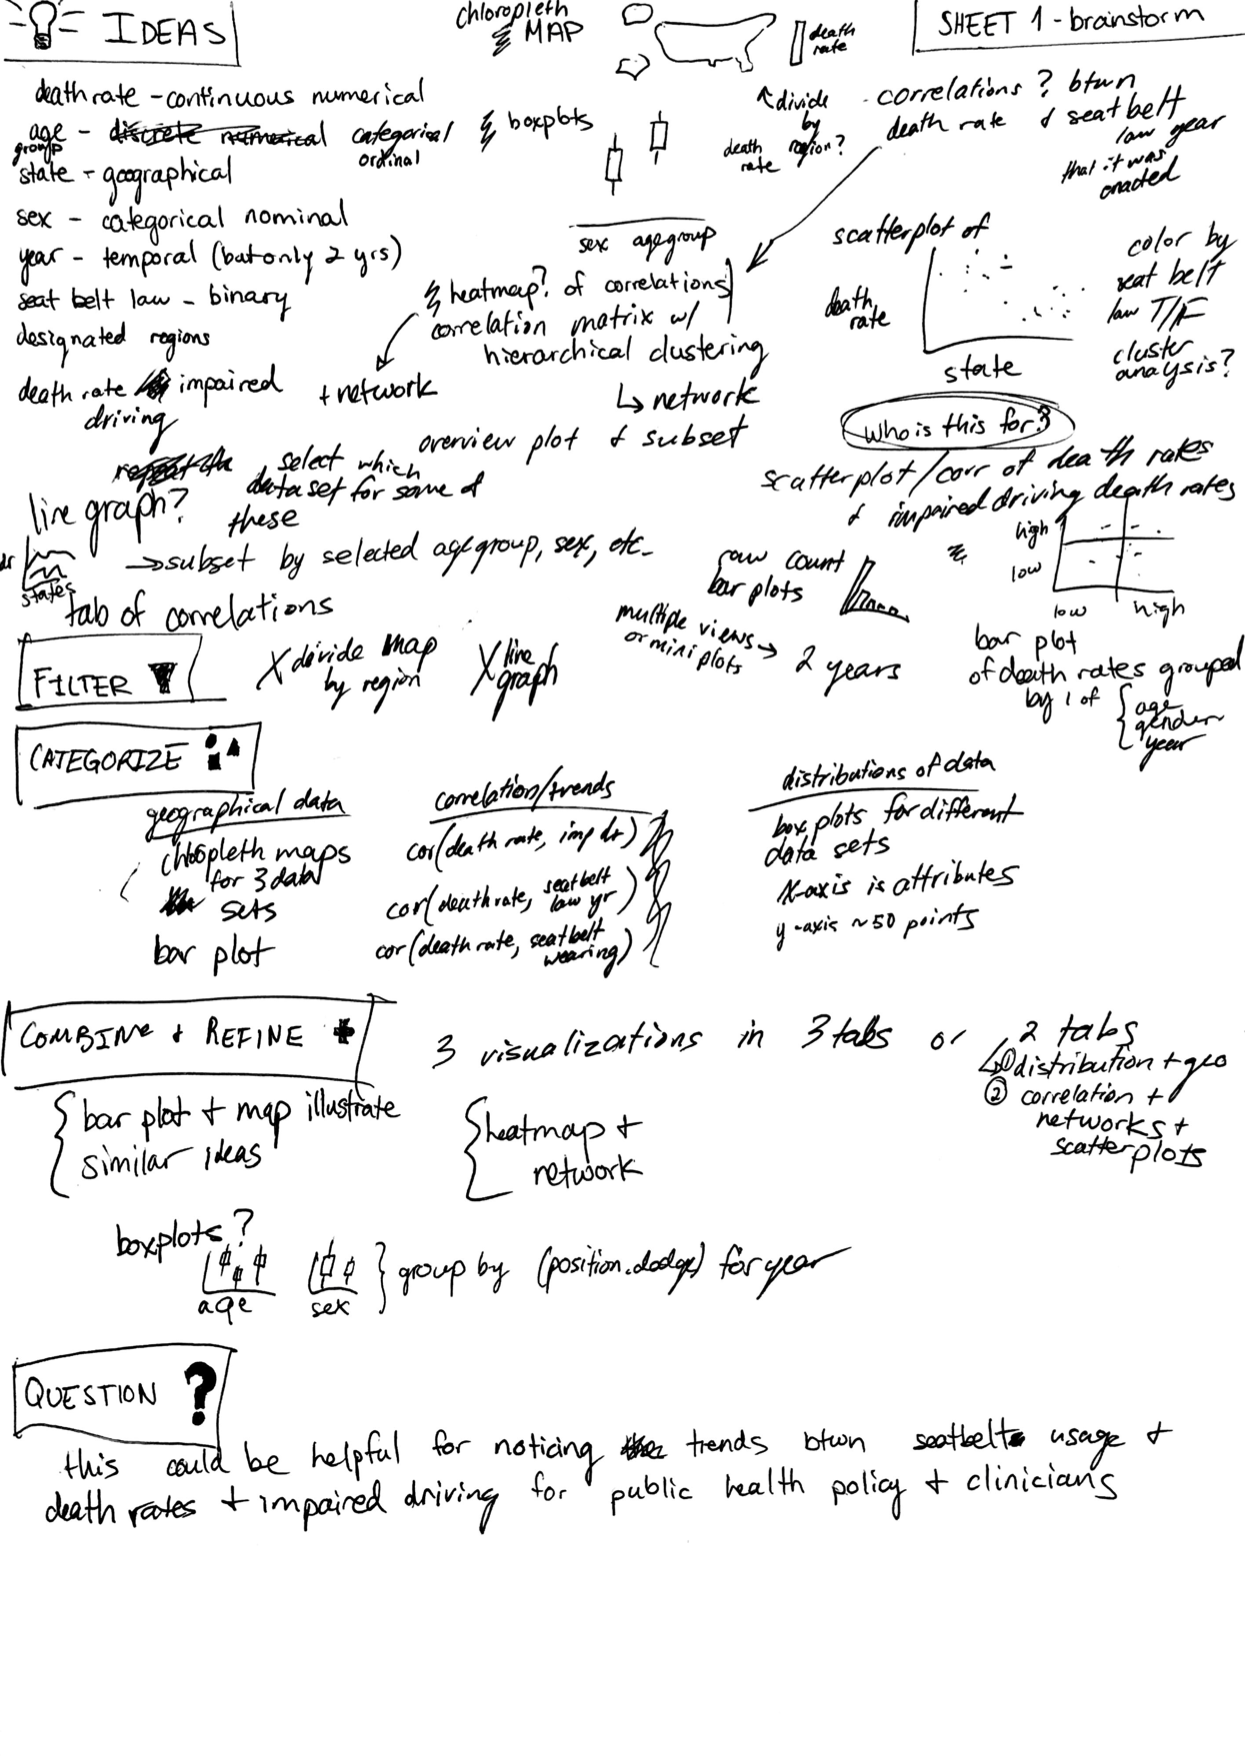 IDEAS
chloropleth
MAP
death
rate
SHEET 1 - brainstorm
death rate - continuous numerical
age
group
- discrete numerical categorical
ordinal
state - geographical
sex - categorical nominal
year - temporal (but only 2 yrs)
seat belt law - binary
designated regions
death rate impaired
driving
boxplots
sex agegroup
↑divide
by
region?
death
rate
correlations? btwn
death rate & seat belt
law year
that it was
enacted
heatmap? of correlations
correlation matrix w/
hierarchical clustering
+ network
↳ network
overview plot & subset
scatterplot of
death
rate
state
color by
seat belt
law T/F
cluster
analysis?
Who is this for?
scatterplot/corr of death rates
& impaired driving death rates
high
low
low high
select which
data set for some of
these
line graph?
dr
states
→subset by selected age group, sex, etc.
tab of correlations
raw count
bar plots
multiple views →
or mini plots
2 years
bar plot
of death rates grouped
by 1 of { age
gender
year
FILTER
X divide map
by region
X line
graph
CATEGORIZE
geographical data
chloropleth maps
for 3 data
sets
bar plot
correlation/trends
cor(death rate, imp dr)
cor(death rate, seat belt
law yr)
cor(death rate, seat belt
wearing)
distributions of data
box plots for different
data sets
x-axis is attributes
y-axis ~50 points
COMBINE + REFINE +
3 visualizations in 3 tabs or 2 tabs
↳① distribution + geo
② correlation +
networks +
scatterplots
{ bar plot + map illustrate
similar ideas
{ heatmap +
network
boxplots?
age
sex
} group by (position.dodge) for year
QUESTION ?
this could be helpful for noticing trends btwn seatbelt usage +
death rates + impaired driving for public health policy + clinicians